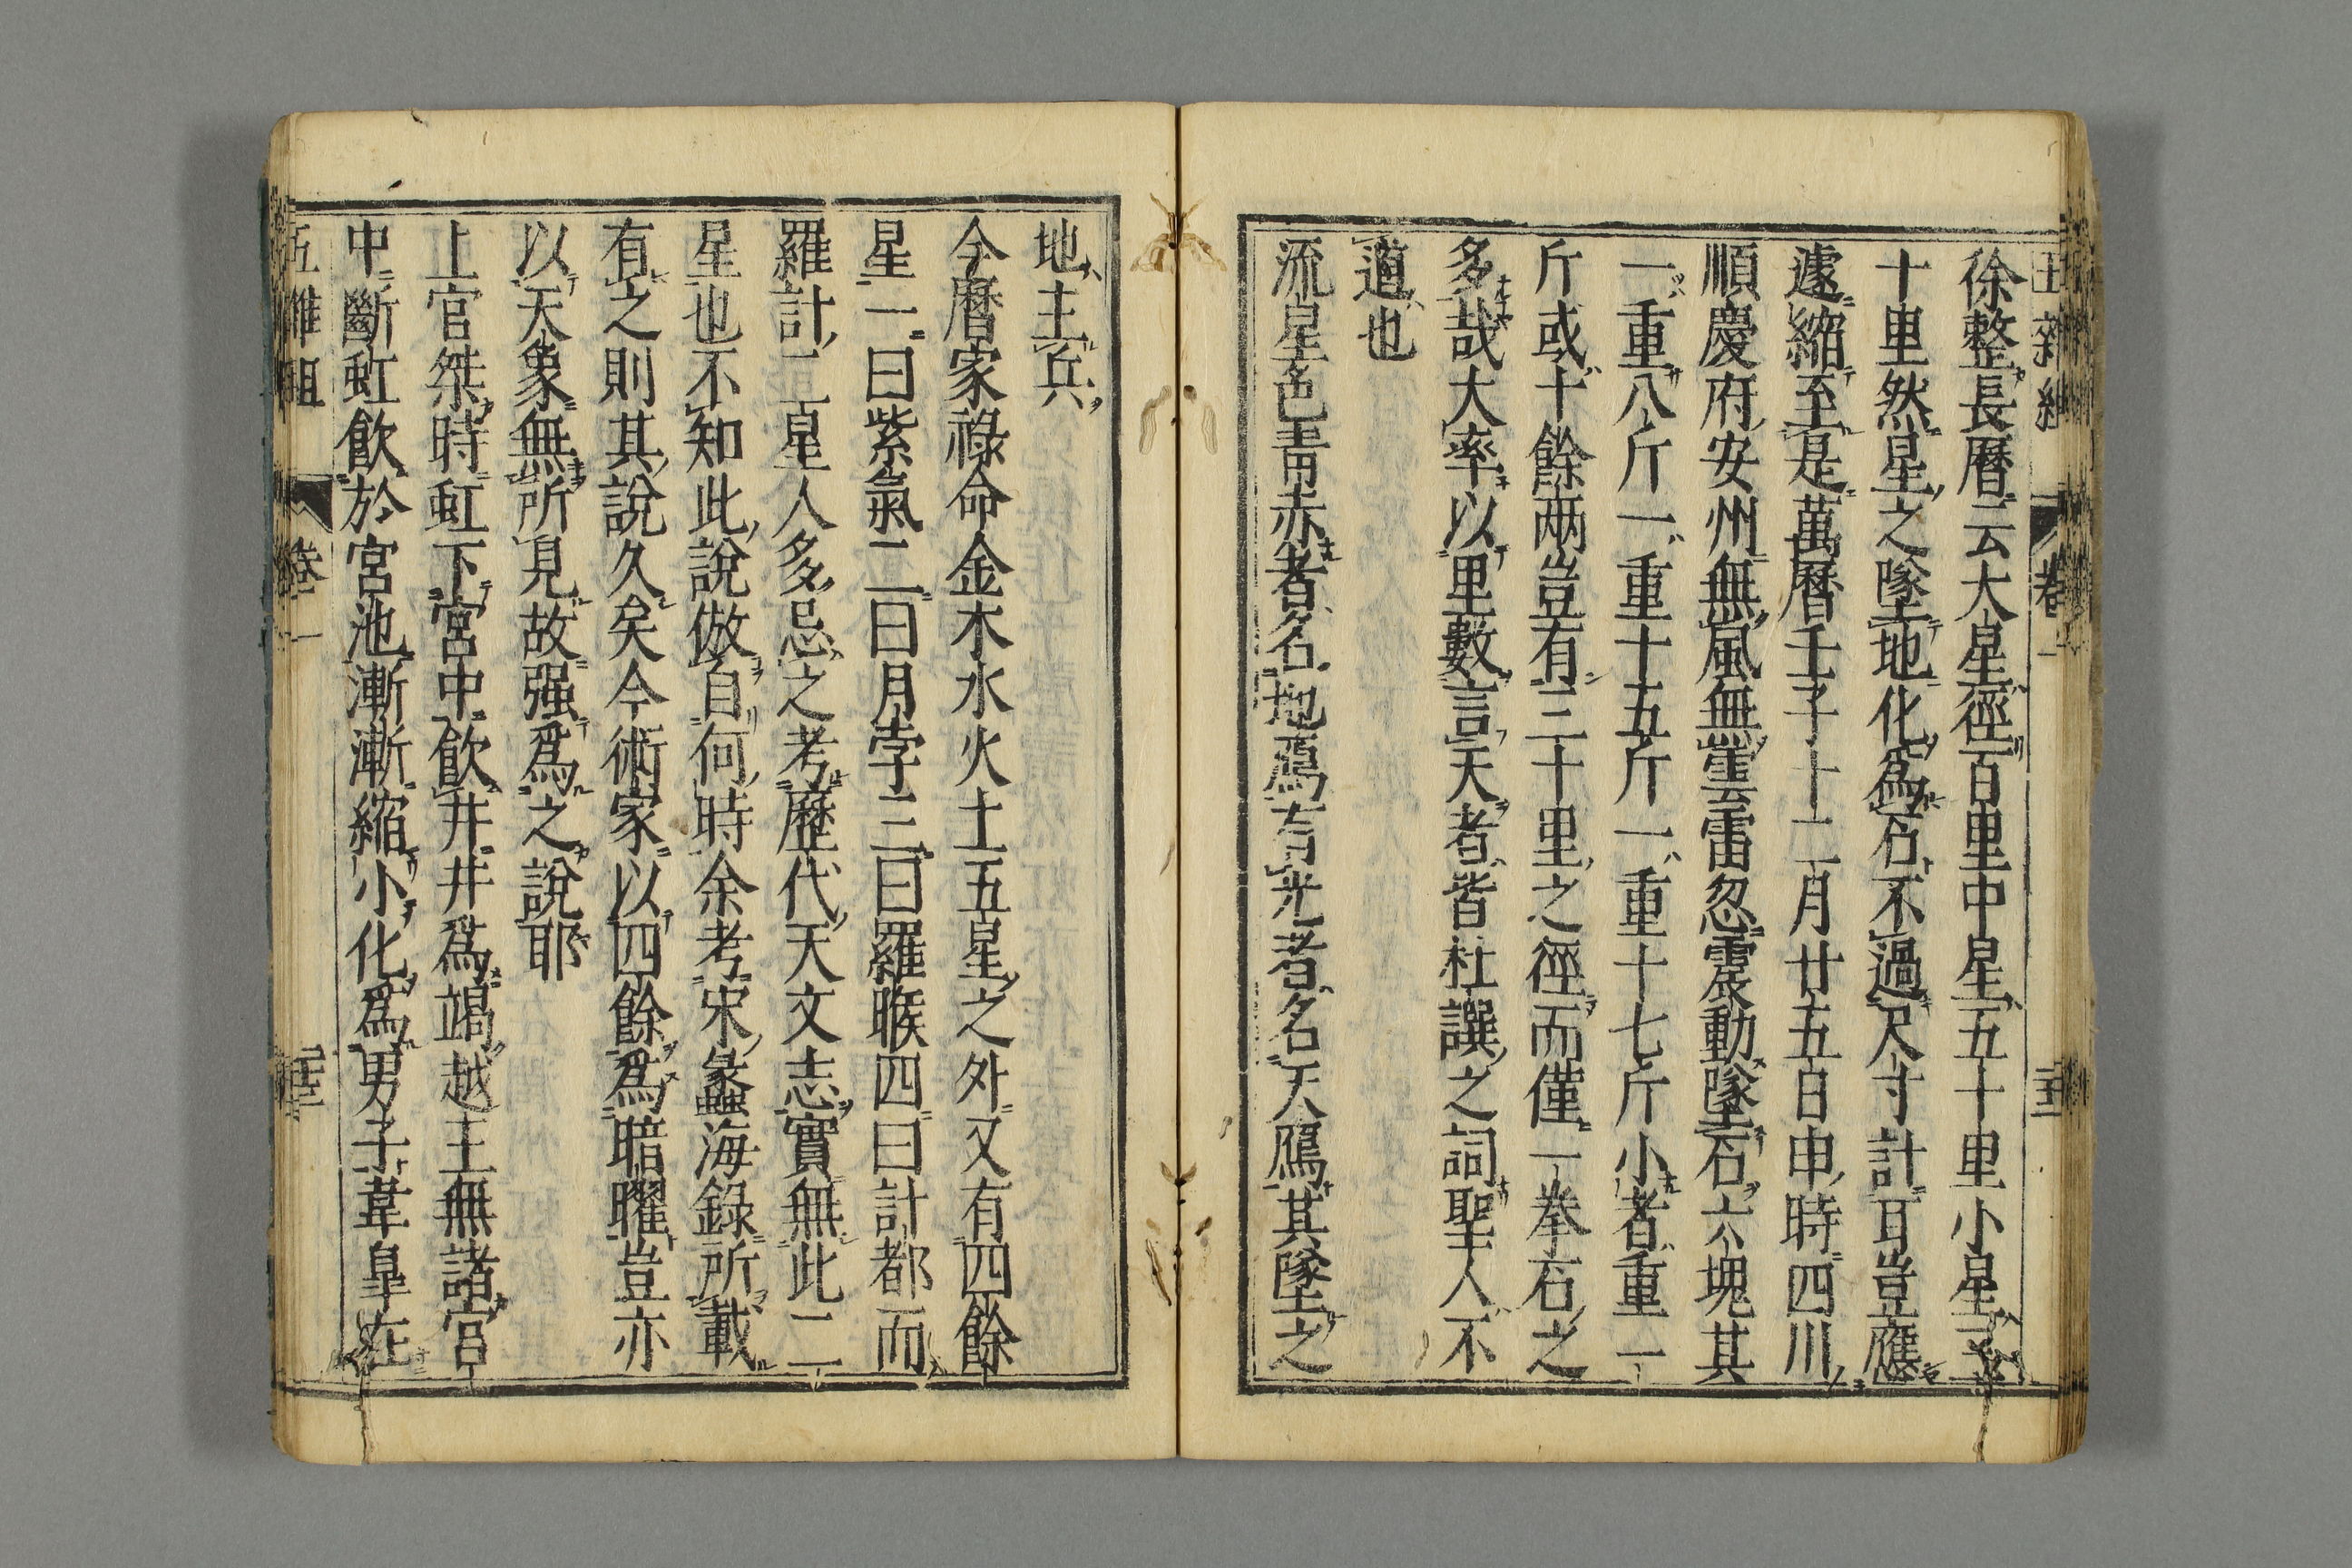 徐整長曆云大星徑百里中星五十里小星三
十里然星之墜地化爲石不過尺寸計耳豈應
遽縮至是萬曆壬子十二月廿五日申時四川
順慶府安州無風無雲雷忽震動墜石六塊其
一重八斤一重十五斤一重十七斤小者重一
斤或十餘兩豈有三十里之徑而僅一拳石之
多哉大率以里數言天者皆杜譔之詞聖人不
道也
流星色靑赤者名地鴈有光者名天鴈其墜之
地主兵
今曆家祿命金木水火土五星之外又有四餘
星一曰紫氣二曰月孛三曰羅睺四曰計都而
羅計二星人多忌之考歷代天文志實無此二
星也不知此說倣自何時余考宋蠡海錄所載
有之則其說久矣今術家以四餘爲暗曜豈亦
以天象無所見故强爲之說耶
上官桀時虹下宮中飮井井爲竭越王無諸宮
中斷虹飮於宮池漸漸縮小化爲男子韋皐在
五雜俎 卷一